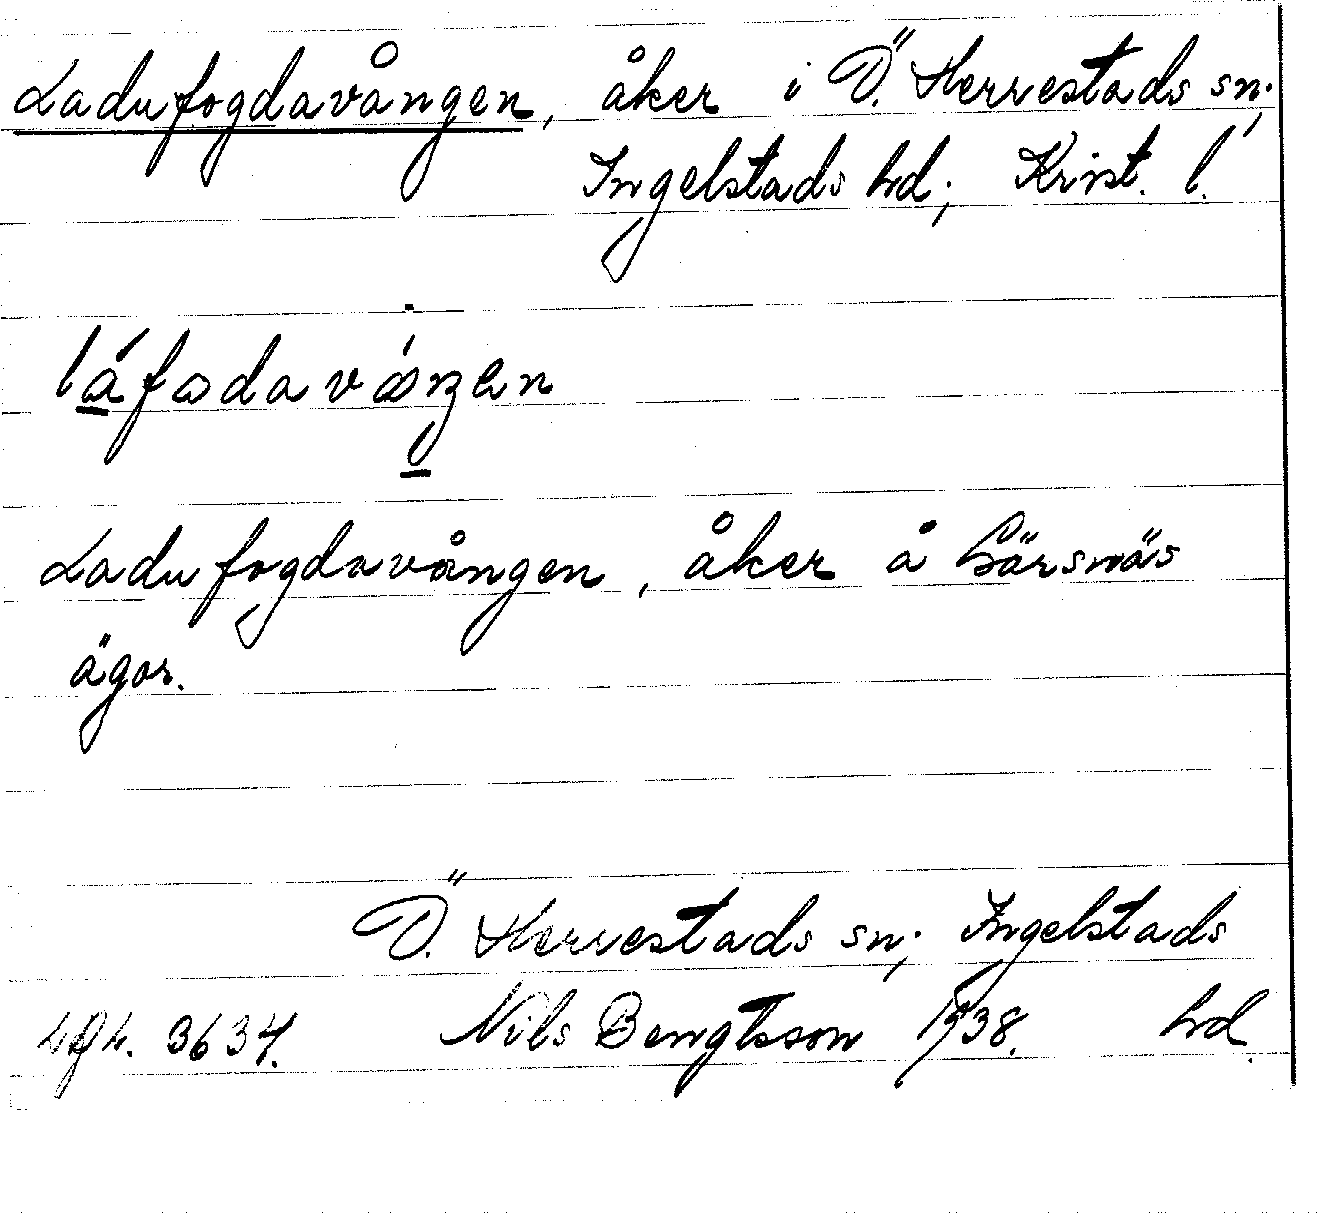 Ladufogdavången, åker i Ö. Herrestads sn;
Ingelstads hd; Krist. l.
Ladufogdavången, åker å Gärsnäs
ägor.
Ö. Herrestads sn; Ingelstads
hd.
3634. Nils Bengtsson 1938.